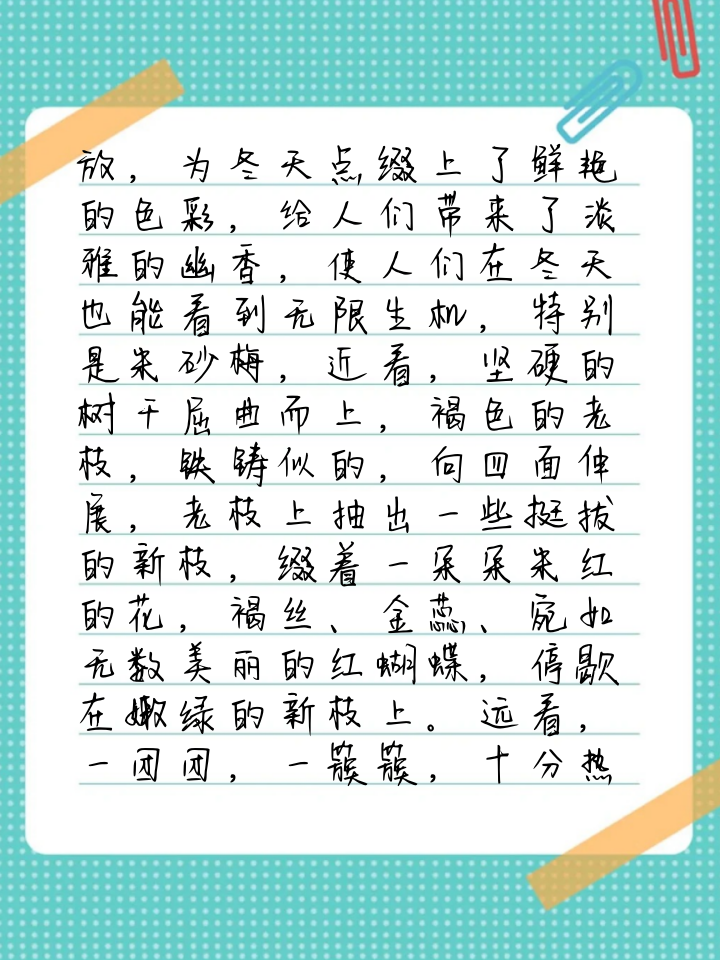 放，为冬天点缀上了鲜艳
的色彩，给人们带来了淡
雅的幽香，使人们在冬天
也能看到无限生机，特别
是朱砂梅，近看，坚硬的
树干屈曲而上，褐色的老
枝，铁铸似的，向四面伸
展，老枝上抽出一些挺拔
的新枝，缀着一朵朵朱红
的花，褐丝、金蕊、宛如
无数美丽的红蝴蝶，停歇
在嫩绿的新枝上。远看，
一团团，一簇簇，十分热